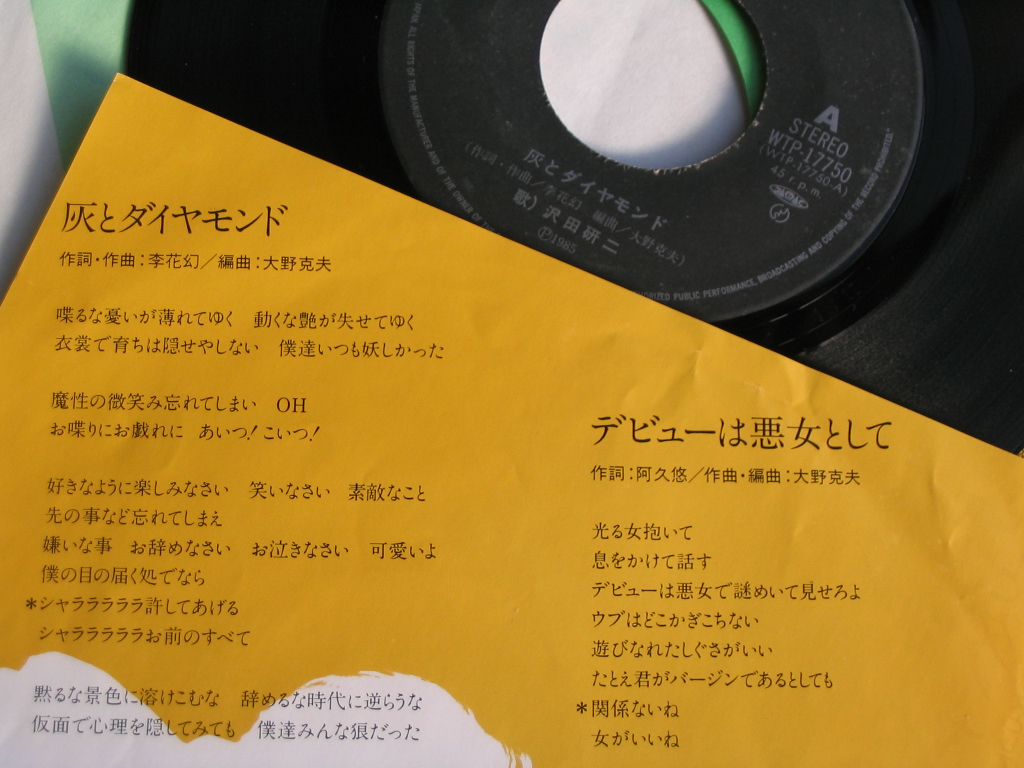 A
STEREO
WTP-17750
(WTP-17750-A)
45 r.p.m.
灰とダイヤモンド
(作詞・作曲/李花幻 編曲/大野克夫)
歌) 沢田研二
Ⓟ1985
ALL RIGHTS OF THE MANUFACTURER AND OF THE OWNER OF
PUBLIC PERFORMANCE, BROADCASTING AND COPYING OF THE RECORD PROHIBITED
灰とダイヤモンド
作詞・作曲:李花幻/編曲:大野克夫
喋るな憂いが薄れてゆく 動くな艶が失せてゆく
衣裳で育ちは隠せやしない 僕達いつも妖しかった
魔性の微笑み忘れてしまい OH
お喋りにお戯れに あいつ!こいつ!
好きなように楽しみなさい 笑いなさい 素敵なこと
先の事など忘れてしまえ
嫌いな事 お辞めなさい お泣きなさい 可愛いよ
僕の目の届く処でなら
*シャラララララ許してあげる
シャラララララお前のすべて
黙るな景色に溶けこむな 辞めるな時代に逆らうな
仮面で心理を隠してみても 僕達みんな狼だった
デビューは悪女として
作詞:阿久悠/作曲・編曲:大野克夫
光る女抱いて
息をかけて話す
デビューは悪女で謎めいて見せろよ
ウブはどこかぎこちない
遊びなれたしぐさがいい
たとえ君がバージンであるとしても
*関係ないね
女がいいね